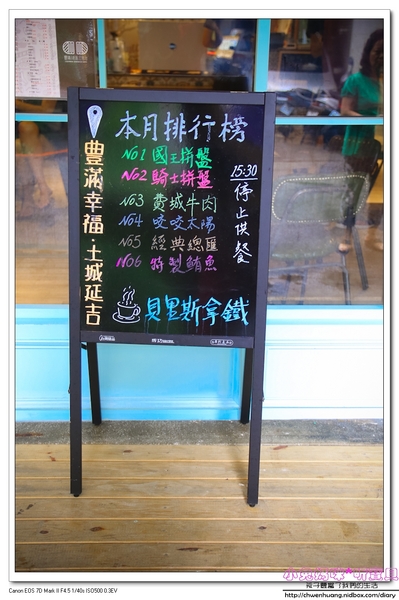 本月排行榜
No1 國王拼盤
No2 騎士拼盤
No3 費城牛肉
No4 咬咬太陽
No5 經典總匯
No6 特製鮪魚
15:30
停止供餐
豐滿幸福·土城延吉
貝里斯拿鐵
Canon EOS 7D Mark II F4.5 1/40s ISO500 0.3EV
http://chwenhuang.nidbox.com/diary